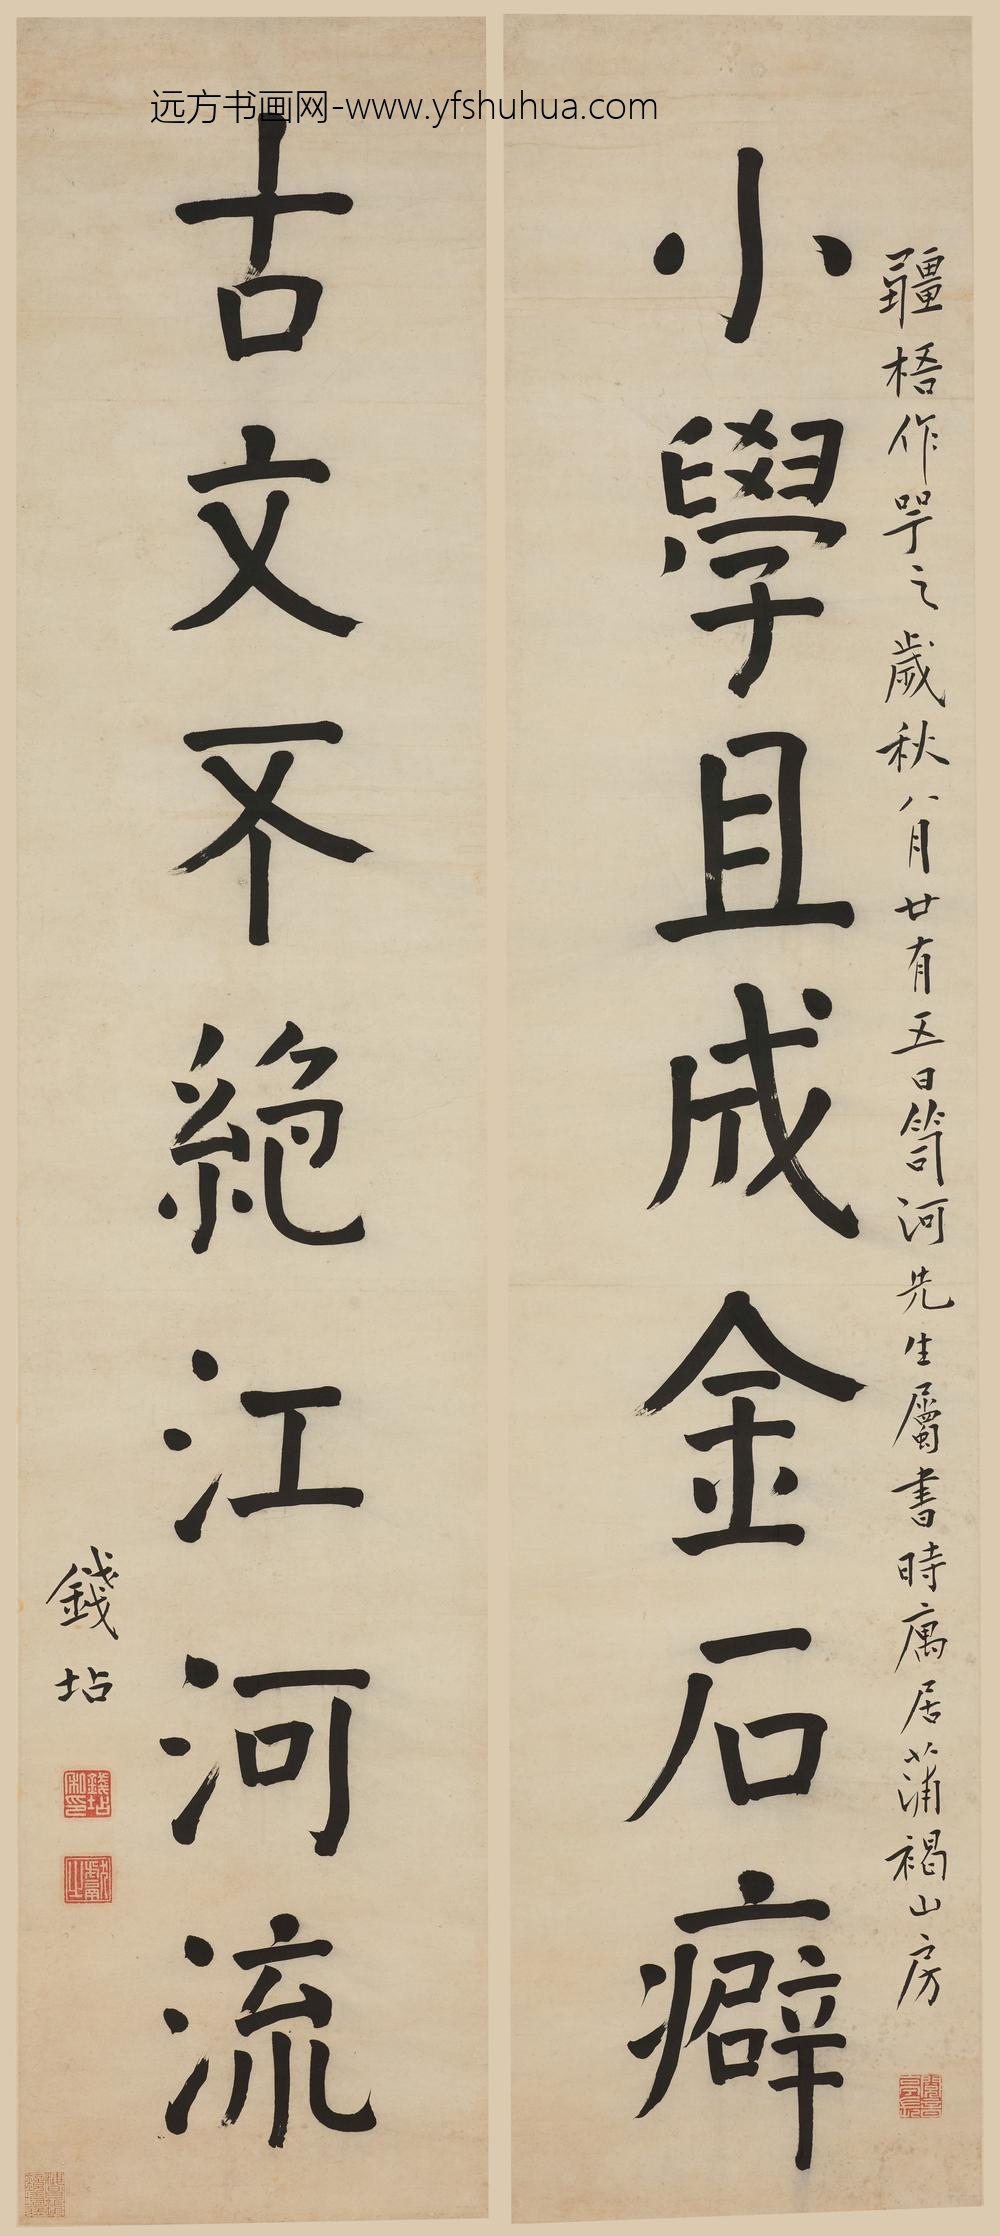 远方书画网-www.yfshuhua.com
小學且成金石癖
疆梧作咢之歲秋八月廿有五日笥河先生屬書時寓居蒲褐山房
古文不絕江河流
錢坫
錢坫私印